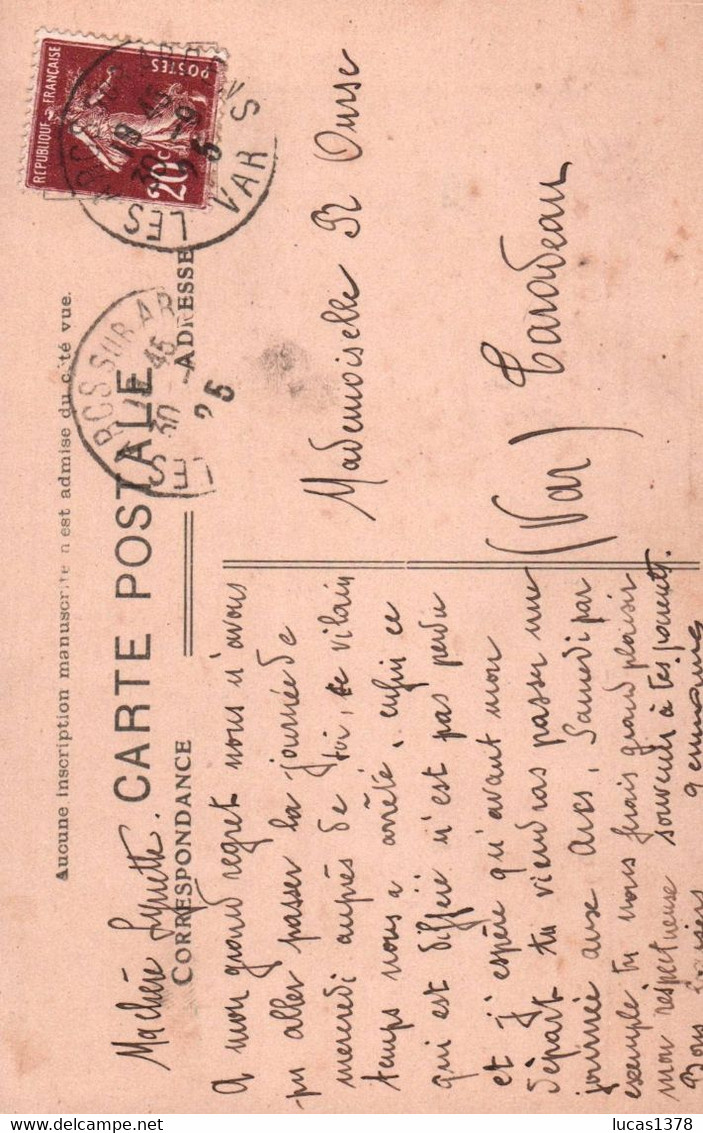 Aucune inscription manuscrite n'est admise du côté vue.
CARTE POSTALE
CORRESPONDANCE
ADRESSE
REPUBLIQUE FRANÇAISE
POSTES
20c
LES ARCS SUR ARGENS
VAR
19 45
30 -9
25
LES ARCS SUR AR
45
30
25
Ma chère
A mon grand regret nous n'avons
pu aller passer la journée de
mercredi auprès de toi, le vilain
temps nous a arrêté, enfin ce
qui est différé n'est pas perdu
et j'espère qu'avant mon
départ tu viendras passer une
journée aux Arcs, Samedi par
exemple tu nous ferais grand plaisir
mon respectueux souvenir à tes parents.
Bons baisers Germaine
Mademoiselle R Ourse
Taradeau
(Var)
lucas1378